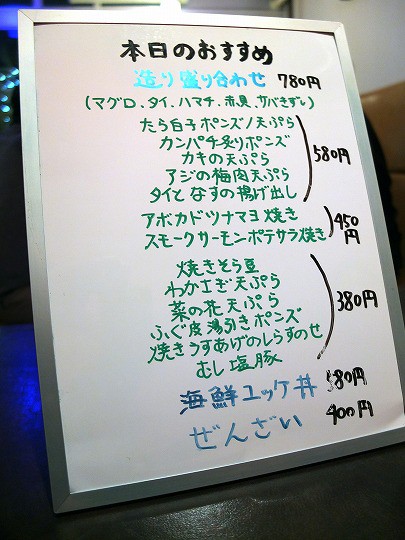 本日のおすすめ
造り盛り合わせ 780円
(マグロ、タイ、ハマチ、赤貝、サバきずし)
たら白子ポンズ/天ぷら
カンパチ炙りポンズ
カキの天ぷら
アジの梅肉天ぷら
タイとなすの揚げ出し
580円
アボカドツナマヨ焼き
スモークサーモンポテサラ焼き
450円
焼きそら豆
わかさぎ天ぷら
菜の花天ぷら
ふぐ皮湯引きポンズ
焼きうすあげのしらすのせ
むし塩豚
380円
海鮮ユッケ丼 580円
ぜんざい 400円